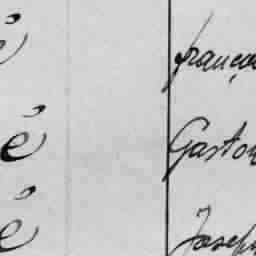 é françoi
é Gaston
é Joseph